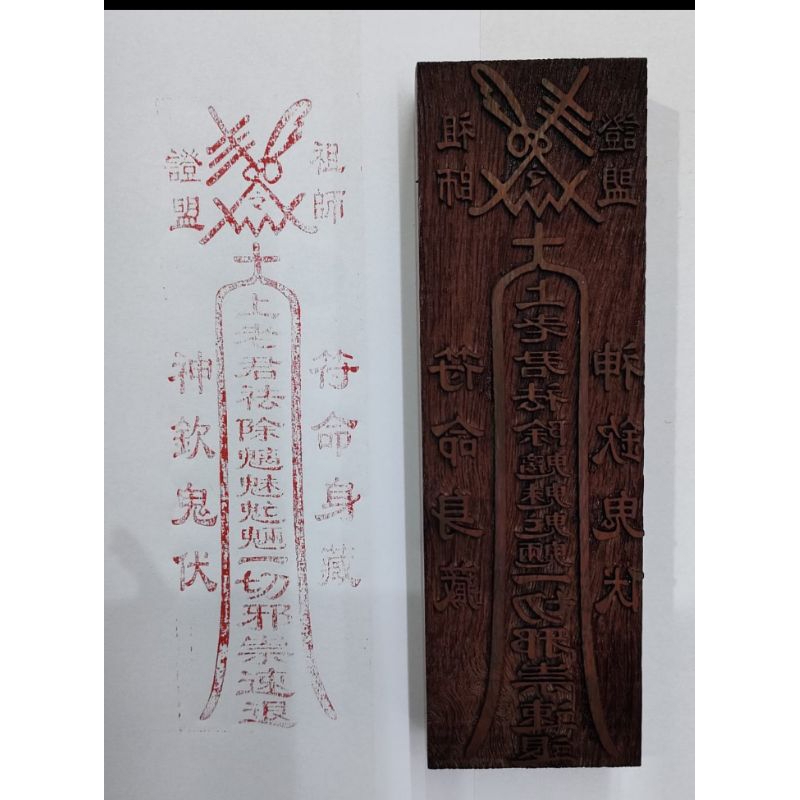 祖師
證盟
上老君祛除魑魅魍魎一切邪祟速退
符命身藏
神欽鬼伏
祖師
證盟
上老君祛除魑魅魍魎一切邪祟速退
符命身藏
神欽鬼伏